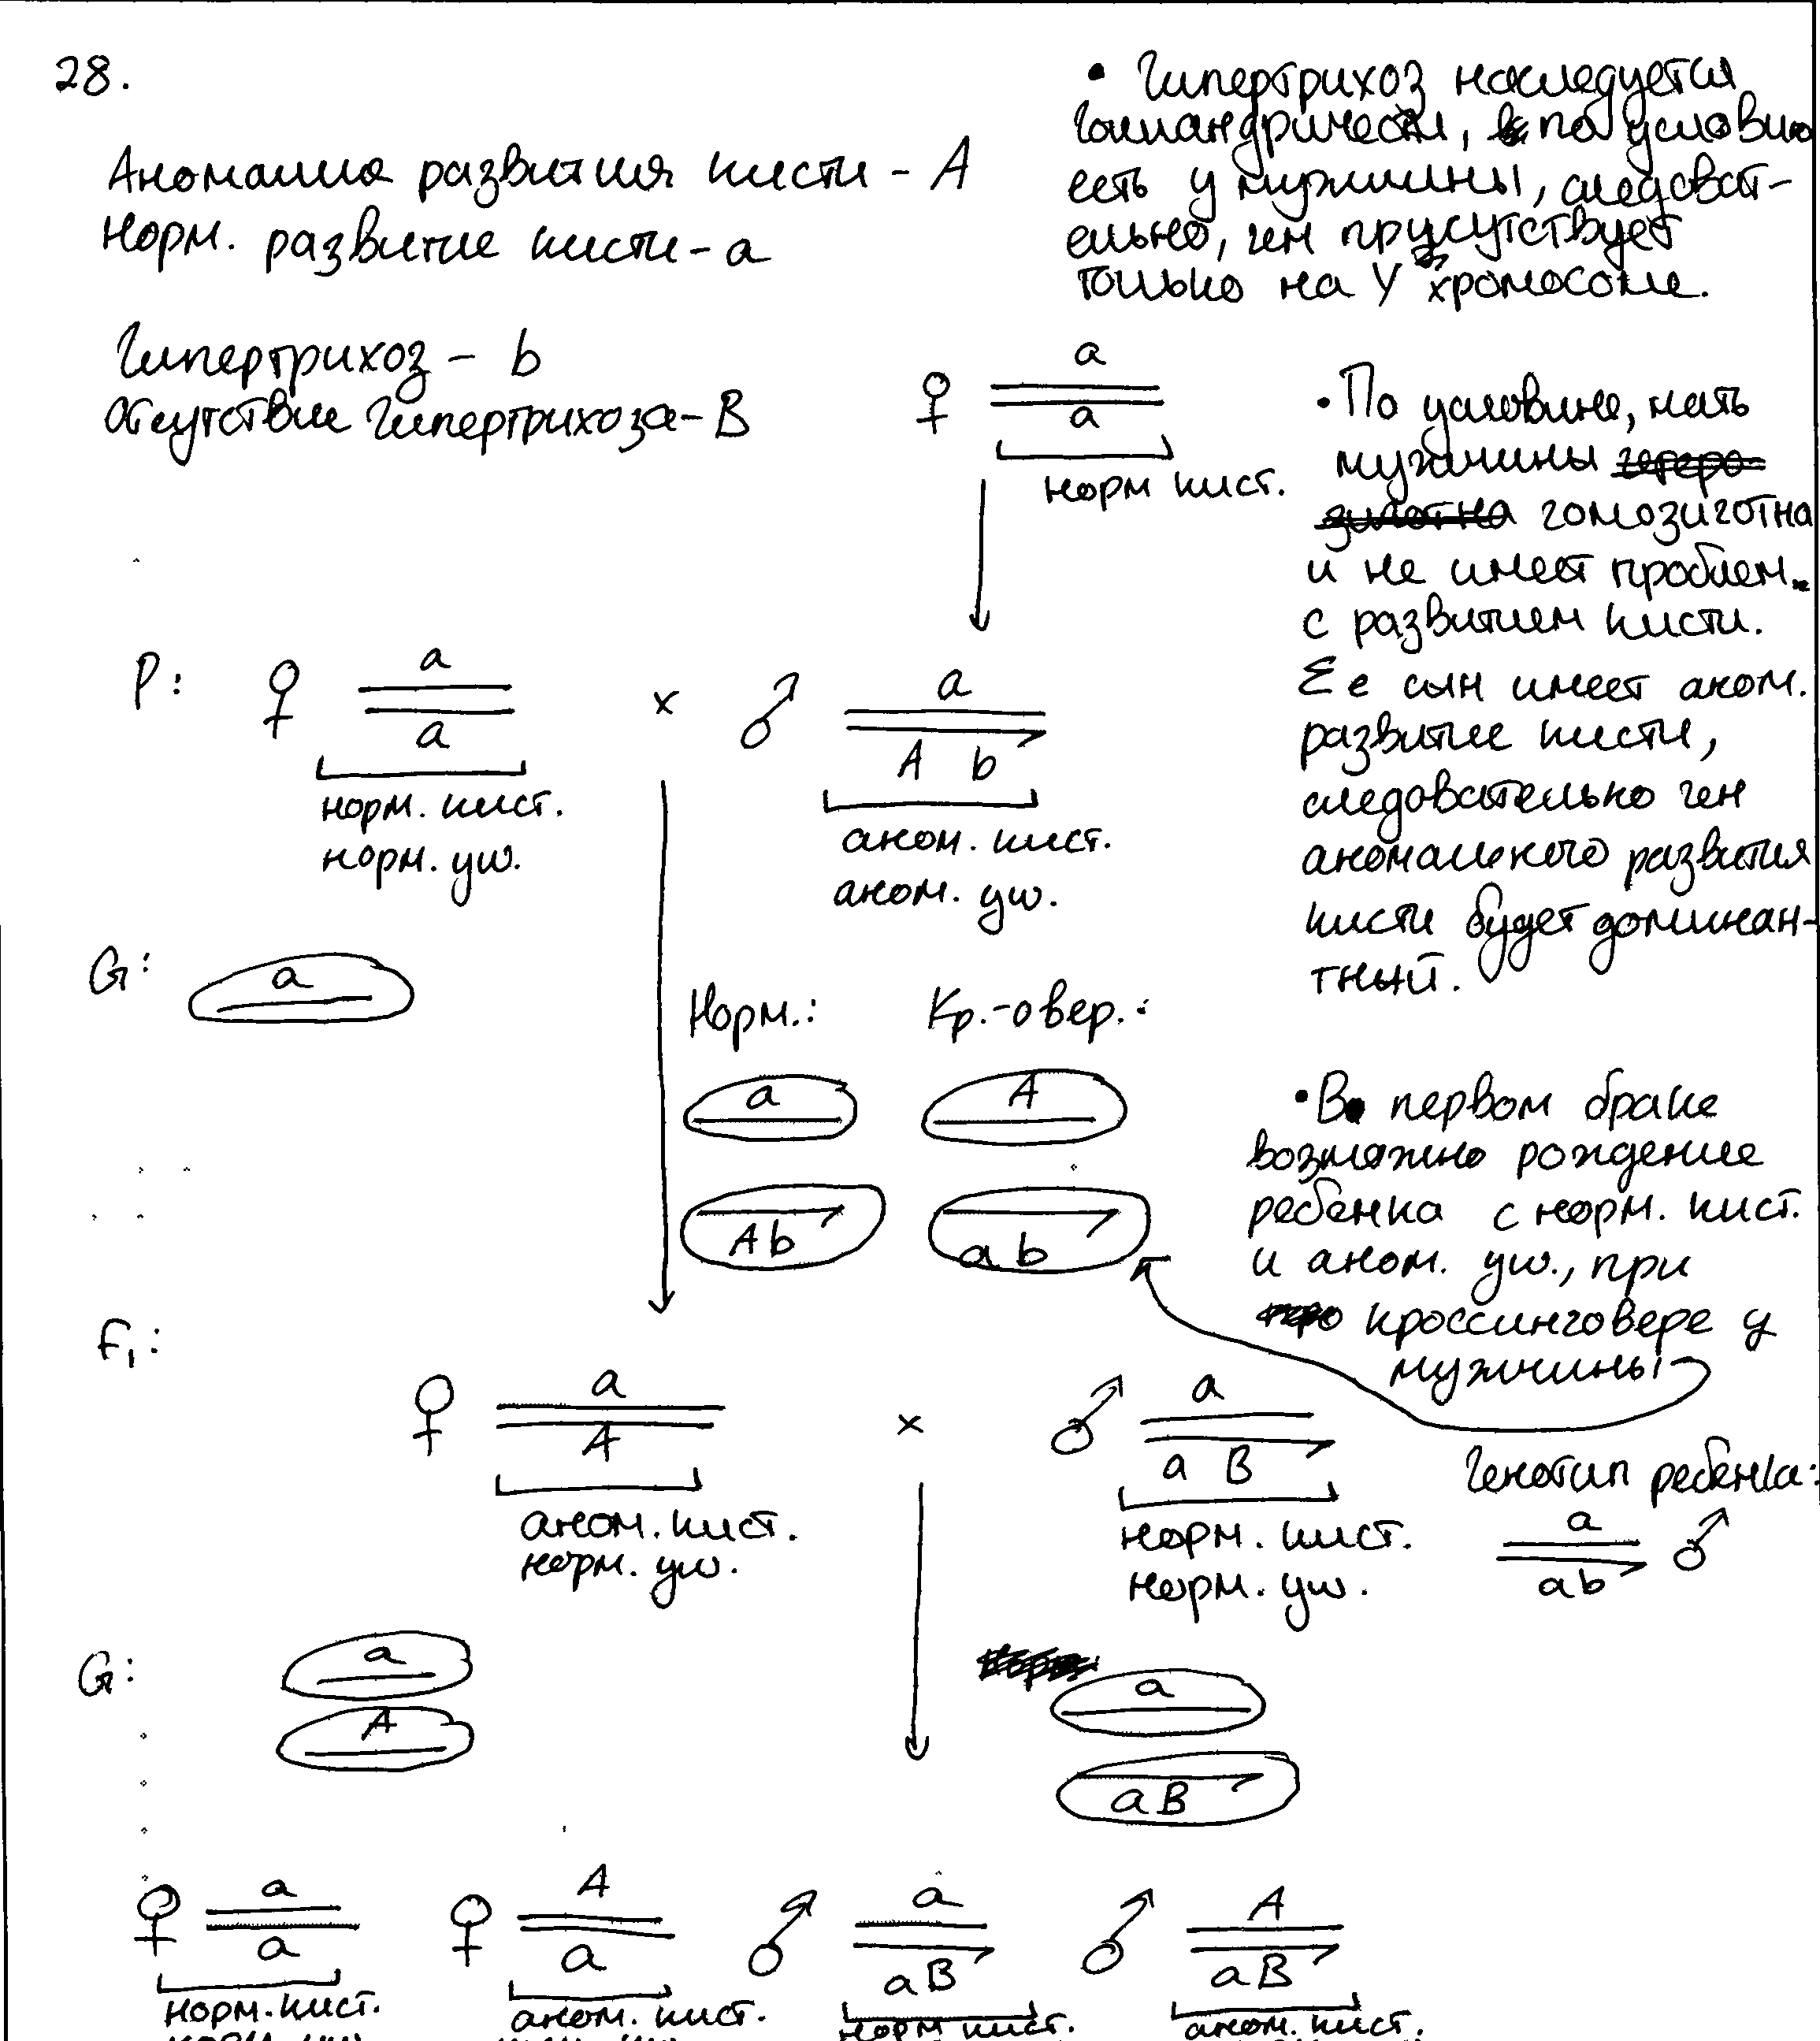 28.
Аномалия развития кисти - А
Норм. развитие кисти - а
Гипертрихоз - b
Отсутствие гипертрихоза - B
• Гипертрихоз наследуется
голландрически, по условию
есть у мужчины, следоват-
ельно, ген присутствует
только на Y хромосоме.
♀ a
a
норм кист.
• По условию, мать
мужчины гетеро-
зиготна гомозиготна
и не имеет проблем
с развитием кисти.
Ее сын имеет аном.
развитие кисти,
следовательно ген
аномального развития
кисти будет доминан-
тный.
P: ♀ a x ♂ a
a A b
норм. кист. аном. кист.
норм. уш. аном. уш.
G: a
Норм.: Кр.-овер.:
a A
Ab ab
• В первом браке
возможно рождение
ребенка с норм. кист.
и аном. уш., при
кроссинговере у
мужчины
Генотип ребенка:
a ♂
ab
F1: ♀ a x ♂ a
A a B
аном. кист. норм. кист.
норм. уш. норм. уш.
G: a a
A aB
♀ a ♀ A ♂ a ♂ A
a a aB aB
норм. кист. аном. кист. норм кист. аном. кист.